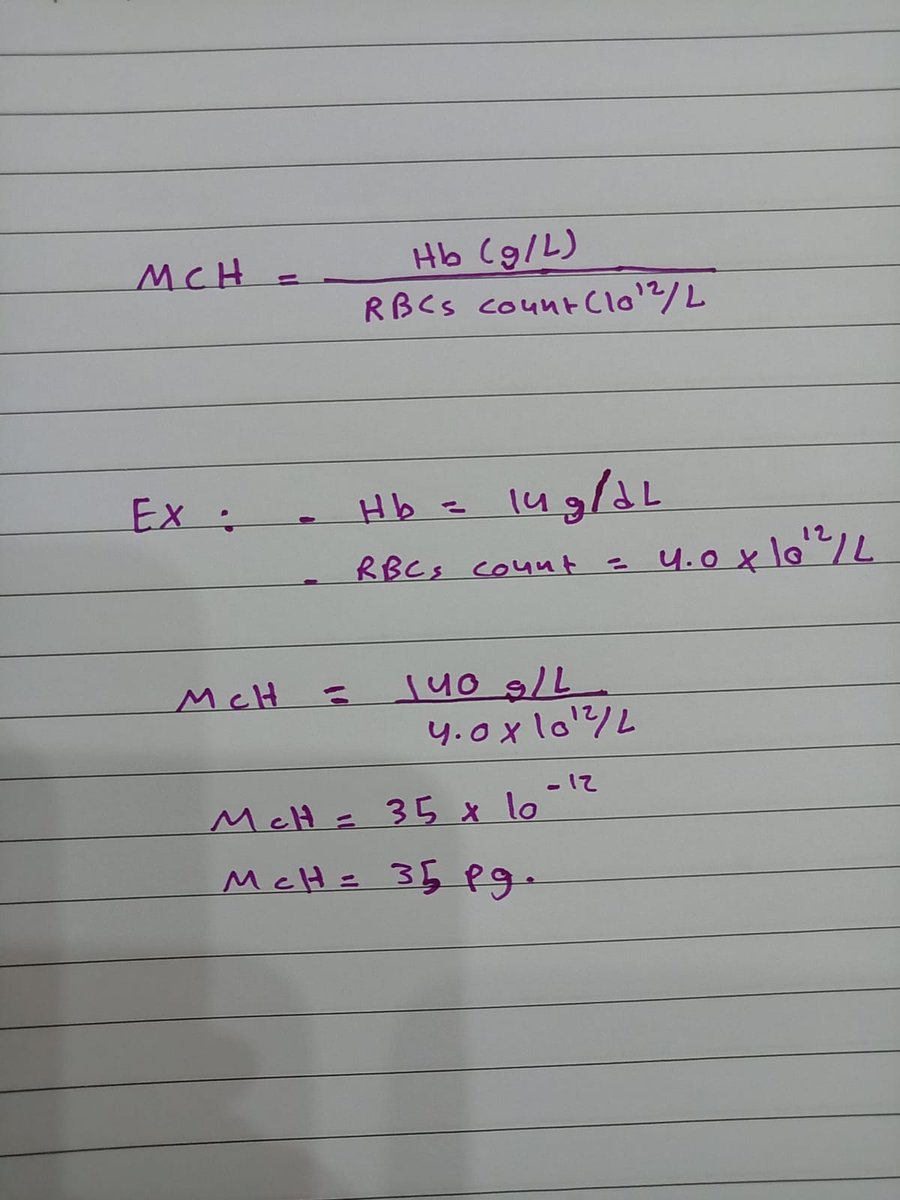 MCH = Hb (g/L)
RBCs count (10¹²/L
Ex : - Hb = 14 g/dL
- RBCs count = 4.0 x 10¹²/L
MCH = 140 g/L
4.0 x 10¹²/L
MCH = 35 x 10⁻¹²
MCH = 35 pg.